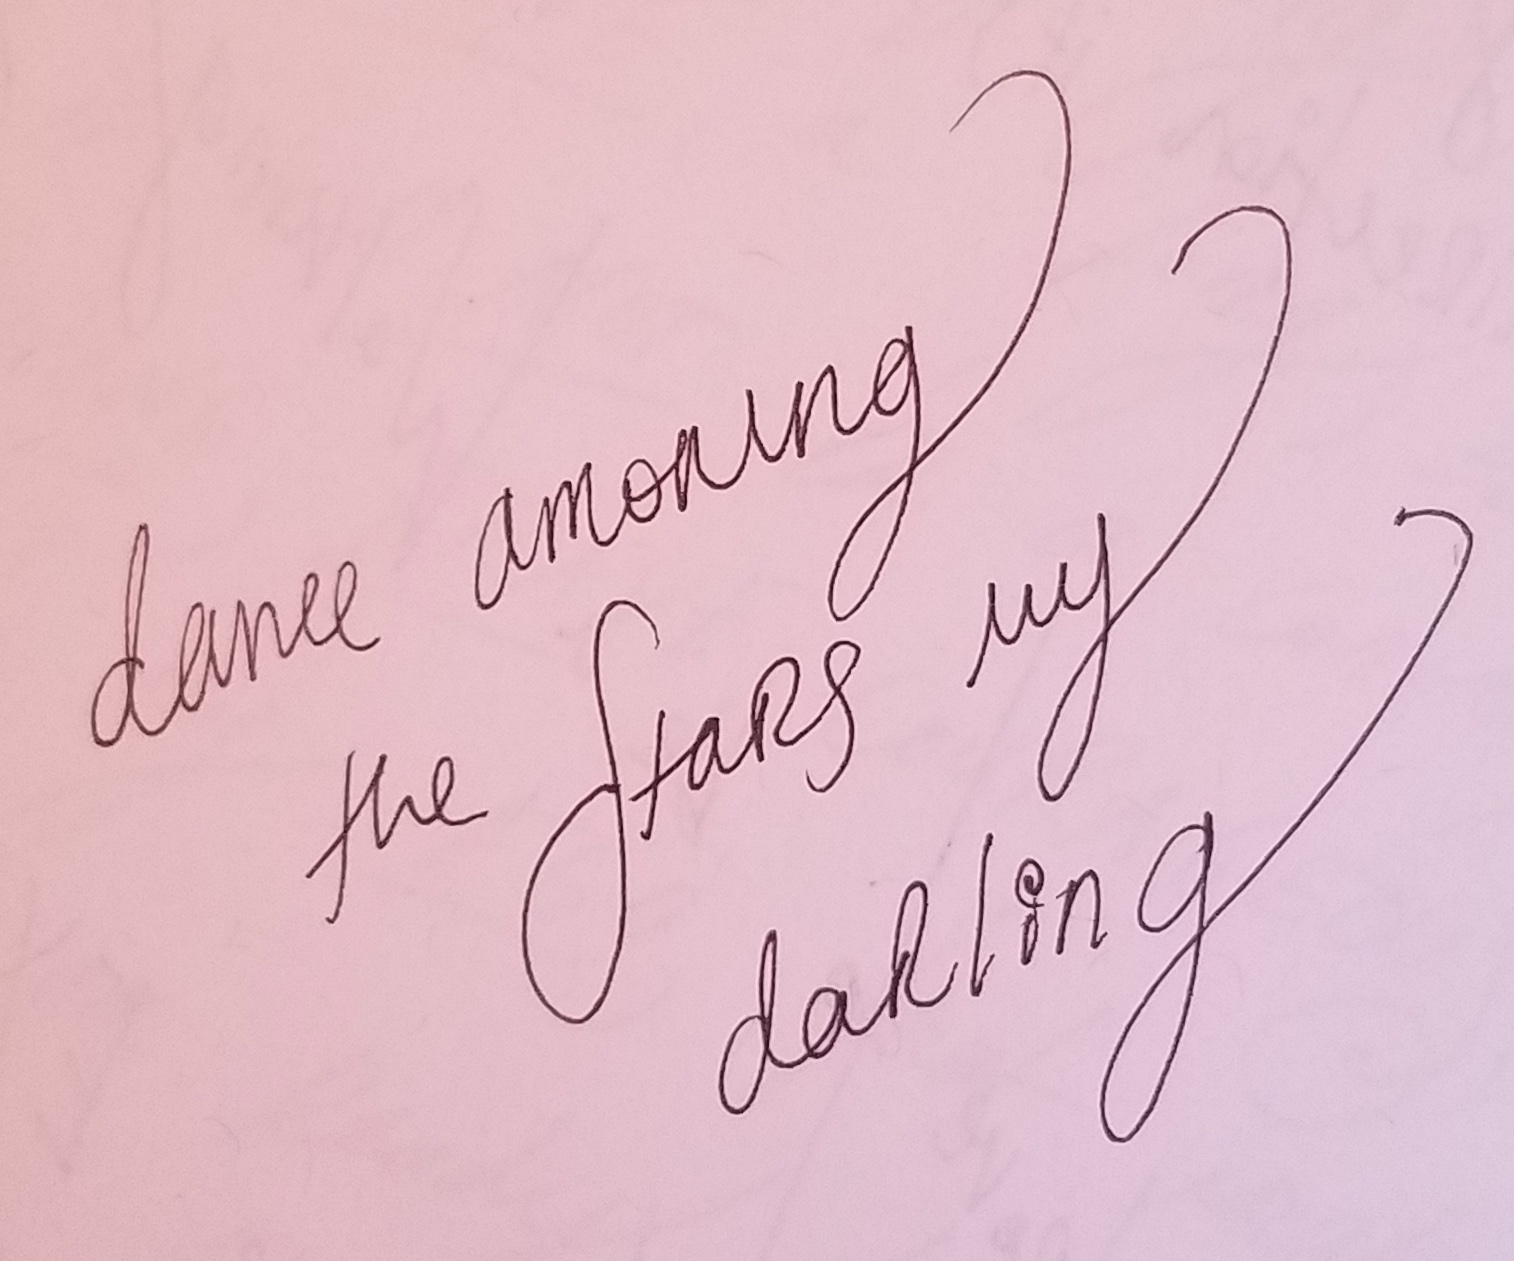 dance amoning
the Stars my
darling